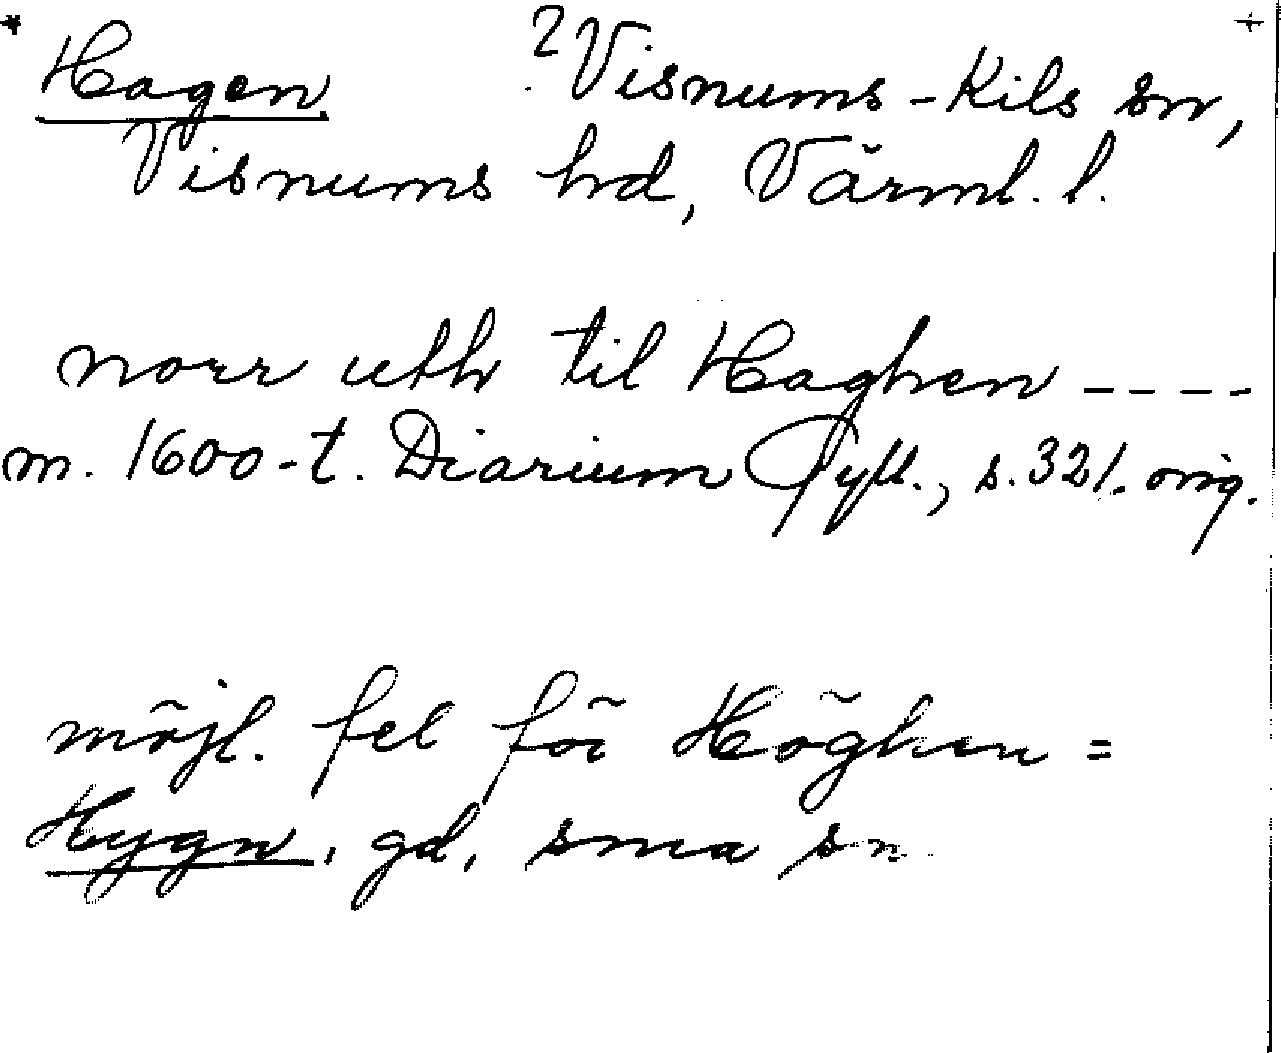 * Hagen. ? Visnums-Kils sn, +
Visnums hd, Värml. l.
norr uth til Haghen ----
m. 1600-t. Diarium Gyll., s. 321. orig.
möjl. fel för Höghen =
Hygn, gd, sma sn.